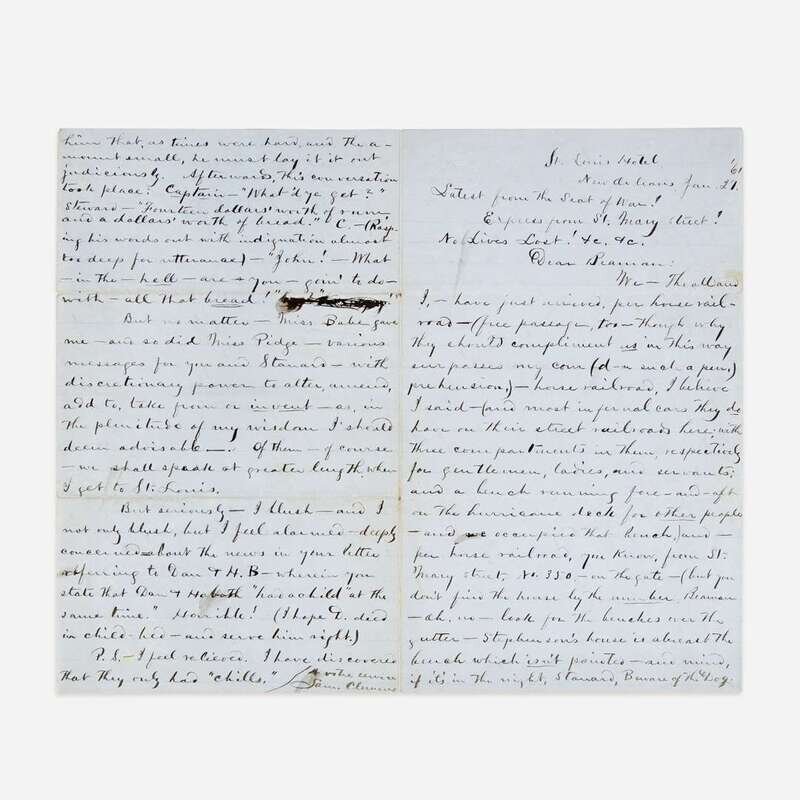 him that, as times were hard, and the a-
mount small, he must lay it out
judiciously. Afterwards, this conversation
took place: Captain – "What'd ye get?"
Steward – "Fourteen dollars' worth of rum
and a dollars' worth of bread." C. – (Rasp-
ing his words out with indignation almost
too deep for utterance) – "John! – What
– in the – hell – are – you – goin' to do –
with – all that bread!"
But no matter – Miss Babe gave
me – and so did Miss Pidge – various
messages for you and Stanard – with
discretionary power to alter, amend,
add to, take from or invent – as, in
the plenitude of my wisdom I should
deem advisable –. Of them – of course
– we shall speak at greater length, when
I get to St. Louis.
But seriously – I blush – and I
not only blush, but I feel alarmed – deeply
concerned – about the news in your letter
referring to Dan & H.B – wherein you
state that Dan & Ho both "had a child" at the
same time." Horrible! (I hope D. died
in child-bed – and serve him right.)
P.S. – I feel relieved. I have discovered
that they only had "chills."
Sam. Clemens
St. Louis Hotel
New Orleans Jan. 21. '61
Latest from the Seat of War!
Express from St. Mary street!
No Lives Lost! &c. &c.
Dear Beaman:
We – The all and
I, – have just arrived, per horse rail-
road – (free passage, too – though why
they should compliment us in this way
surpasses my com (d–n such a pen,)
prehension,) – horse railroad, I believe
I said – (and most infernal cars they do
have on their street railroads here, with
three compartments in them, respectively
for gentlemen, ladies, and servants;
and a bench running fore-and-aft
on the hurricane deck for other people
– and we occupied that bench,) and –
per horse railroad, you know, from St.
Mary street, No. 350, – on the gate – (but you
don't find the house by the number, Beaman
– ah, no – look for the benches over the
gutter – Stephenson's house is abreast the
bench which isn't painted – and mind,
if it's in the night, Stanard, Beware of the Dog.